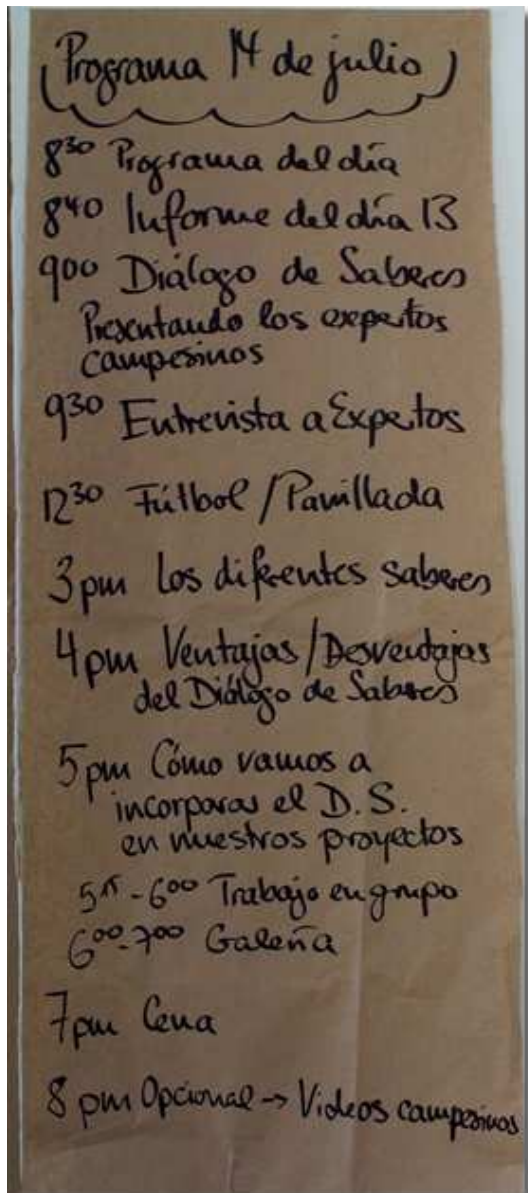 Programa 14 de julio
8³⁰ Programa del día
8⁴⁰ Informe del día 13
9⁰⁰ Diálogo de Saberes
Presentando los expertos
campesinos
9³⁰ Entrevista a Expertos
12³⁰ Fútbol / Parrillada
3 pm Los diferentes saberes
4 pm Ventajas / Desventajas
del Diálogo de Saberes
5 pm Cómo vamos a
incorporar el D.S.
en nuestros proyectos
5¹⁵ - 6⁰⁰ Trabajo en grupo
6⁰⁰ - 7⁰⁰ Galería
7 pm Cena
8 pm Opcional → Videos campesinos